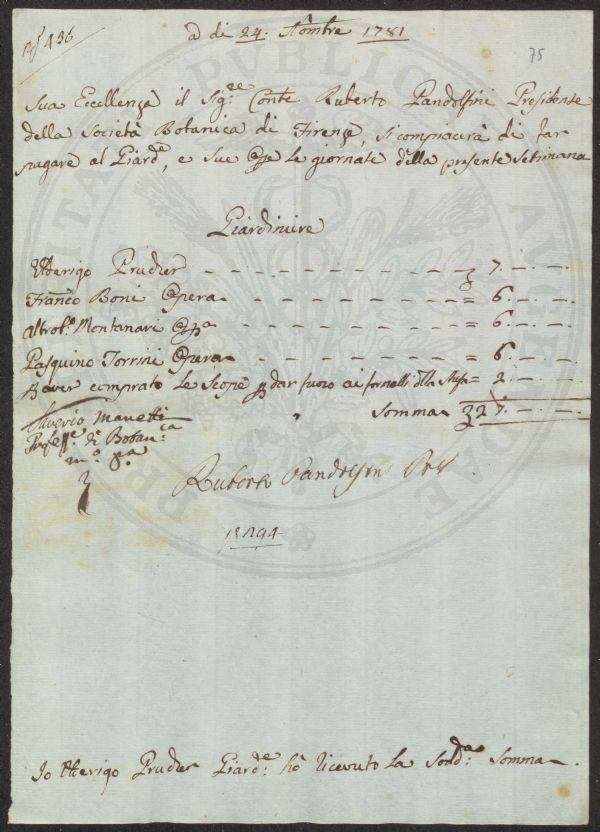 N.° 436
a di 24. 9bmbre 1781
75
Sua Eccellenza il Sig:re Conte Ruberto Pandolfini Presidente
della Società Botanica di Firenze, si compiacerà di far
pagare al Giard:e, e sue Opre le giornate della presente Settimana
Giardiniere
Uderigo Prucker - - - - - - - - - - - 7. - . -
Franco Boni Opera - - - - - - - - - = 6. - . -
altrob:o Montanari Opa - - - - - - - = 6. - . -
Pasquino Torrini Opera - - - - - - - - 6. - . -
P aver comprato le Scope p dar fuoco ai fornelli dlla stufa = 2. - . -
Saverio Manetti
Somma 27. - . -
Profess:re di Botan:ca
m:o p:a
Ruberto Pandolfini Pres
194
Io Uderigo Prucker Giard:e hò ricevuto la Sond:a Somma
PUBLICAE